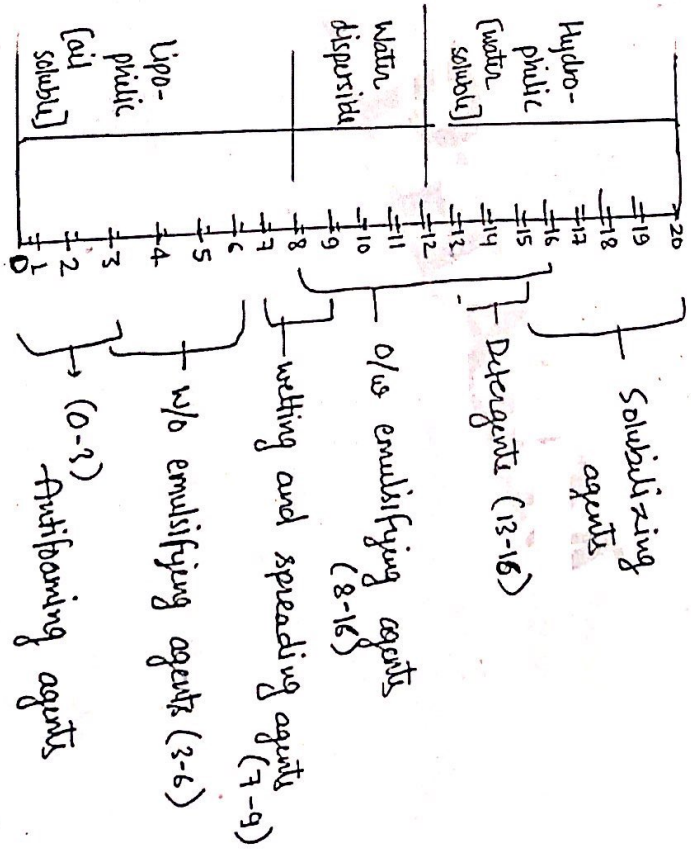 Hydro-
philic
[water
soluble]
Water
disperside
Lipo-
philic
[oil
soluble]
20
19
18
17
16
15
14
13
12
11
10
9
8
7
6
5
4
3
2
1
0
Solubilizing
agents
Detergents (13-16)
O/W emulsifying agents
(8-16)
wetting and spreading agents
(7-9)
W/O emulsifying agents (3-6)
→ (0-3)
Antifoaming agents